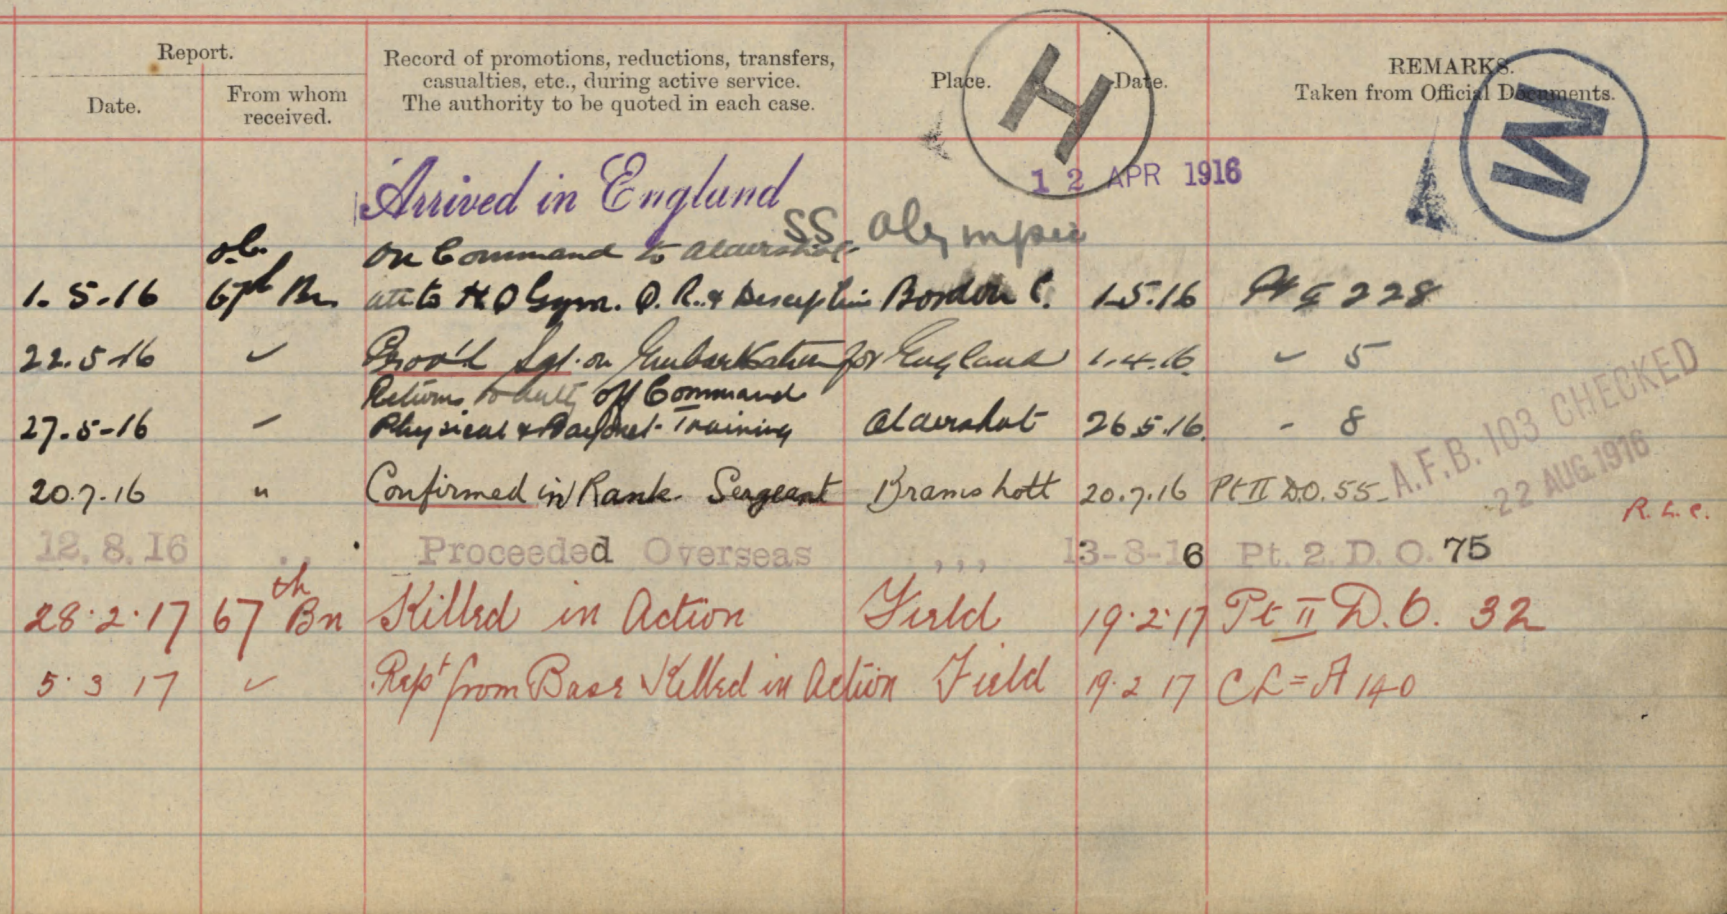 Report.
Date.
From whom received.
Record of promotions, reductions, transfers, casualties, etc., during active service. The authority to be quoted in each case.
Place.
Date.
REMARKS.
Taken from Official Documents.
H
M
Arrived in England 12 APR 1916
SS Olympic
O.C. On Command to Aldershot
1.5.16 67th Bn att to H Q Gym. Bordon C. 1.5.16 228
22.5.16 ✓ Prov'l Sgt. on Embarkation for England 1.4.16 ✓ 5
Returns to duty off Command
27.5-16 Physical & Bayonet Training Aldershot 26.5.16. - 8
20.7.16 " Confirmed in Rank Sergeant Bramshott 20.7.16 Pt II D.O. 55
A.F.B. 103 CHECKED
22 AUG. 1916
R.L.C.
12.8.16 .. Proceeded Overseas ,,, 13-8-16 Pt. 2. D. O. 75
28.2.17 67th Bn Killed in Action Field 19.2.17 Pt II D.O. 32
5.3 17 ✓ Rept from Base Killed in Action Field 19.2 17 CL=A 140